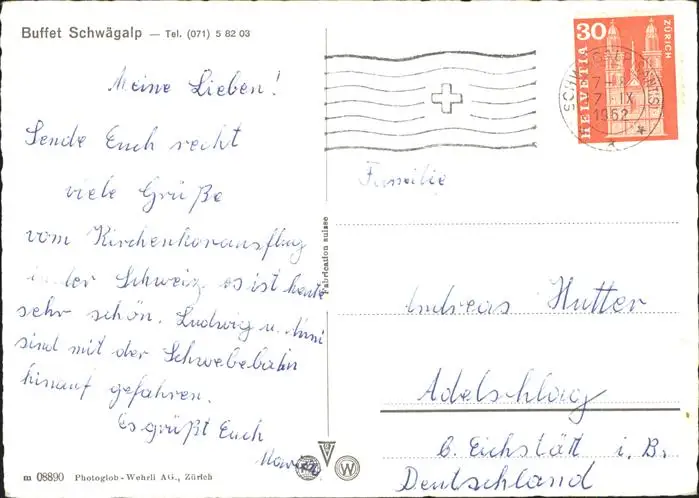 Buffet Schwägalp — Tel. (071) 5 82 03
Meine Lieben!
Sende Euch recht
viele Grüße
vom Kirchenkorausflug
in der Schweiz es ist heute
sehr schön. Ludwig u.
sind mit der Schwebebahn
hinauf gefahren.
Es grüßt Euch
m 08890 Photoglob-Wehrli AG., Zürich
Fabrication suisse
30
HELVETIA
ZÜRICH
7-IX
1962
Familie
Andreas Hutter
Adelschlag
b. Eichstätt i. B.
Deutschland
W